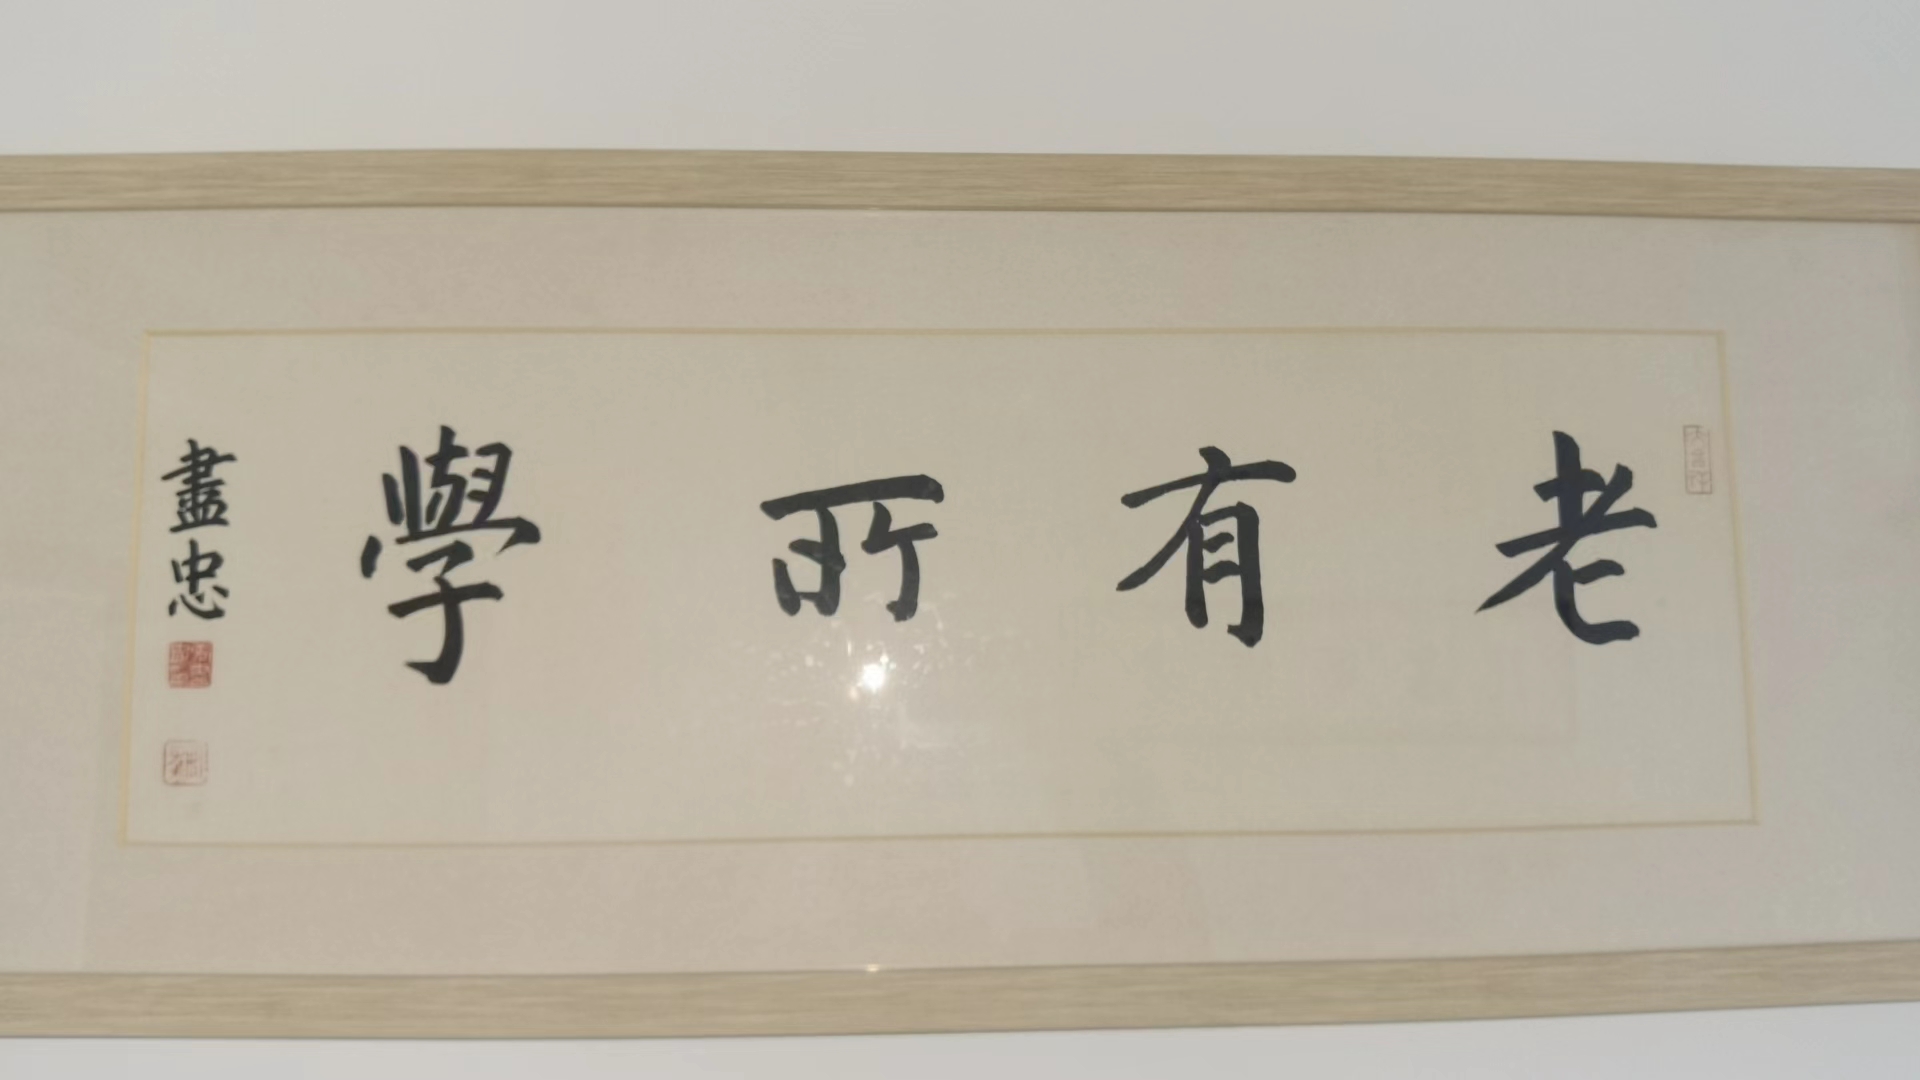 老有所學
盡忠